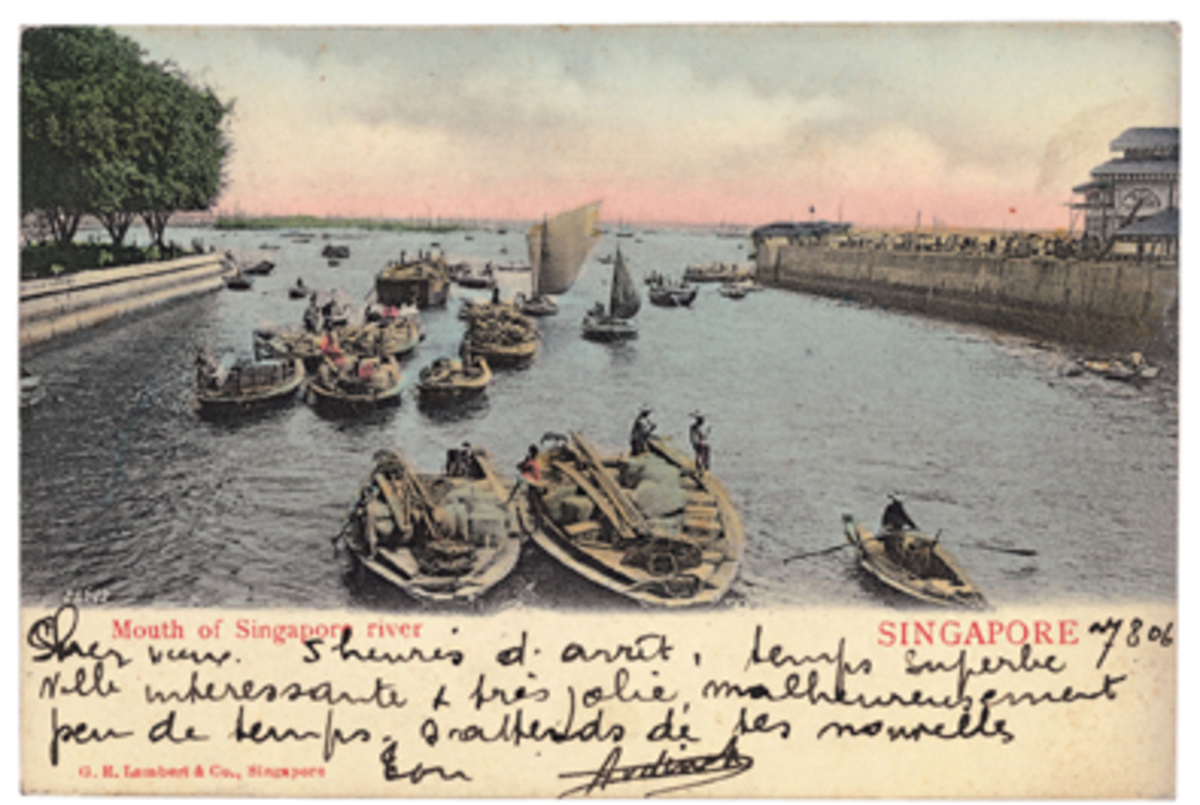 Mouth of Singapore river
SINGAPORE
7 8 06
Cher vieux. 5 heures d'arrêt, temps superbe
Ville intéressante & très jolie, malheureusement
peu de temps. J'attends de tes nouvelles
Ton
G. R. Lambert & Co., Singapore